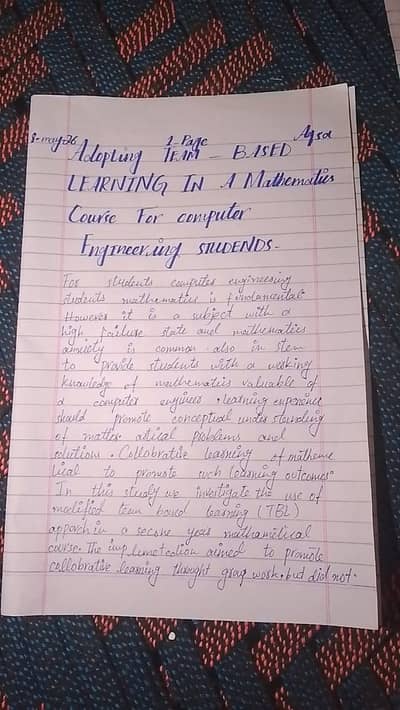 8-may-26 1-Page Aqsa
Adopting TEAM - BASED
LEARNING IN A Mathematics
Course For computer
Engineering STUDENDS.
For students computer engineering
students mathematics is fundamental.
However it is a subject with a
high failure state and mathematics
anxiety is common also in stem
to provide students with a working
knowledge of mathematics valuable of
a computer engineer. learning experience
should promote conceptual under standing
of matter problems and
solutions. Collobrative learning of matheme
tical to promote such learning outcomes"
In this study we investigate the use of
modified team based learning (TBL)
in a secone year mathametical
course. The imp lemetcation aimed to promote
collobrative learning throught group work. but did not.